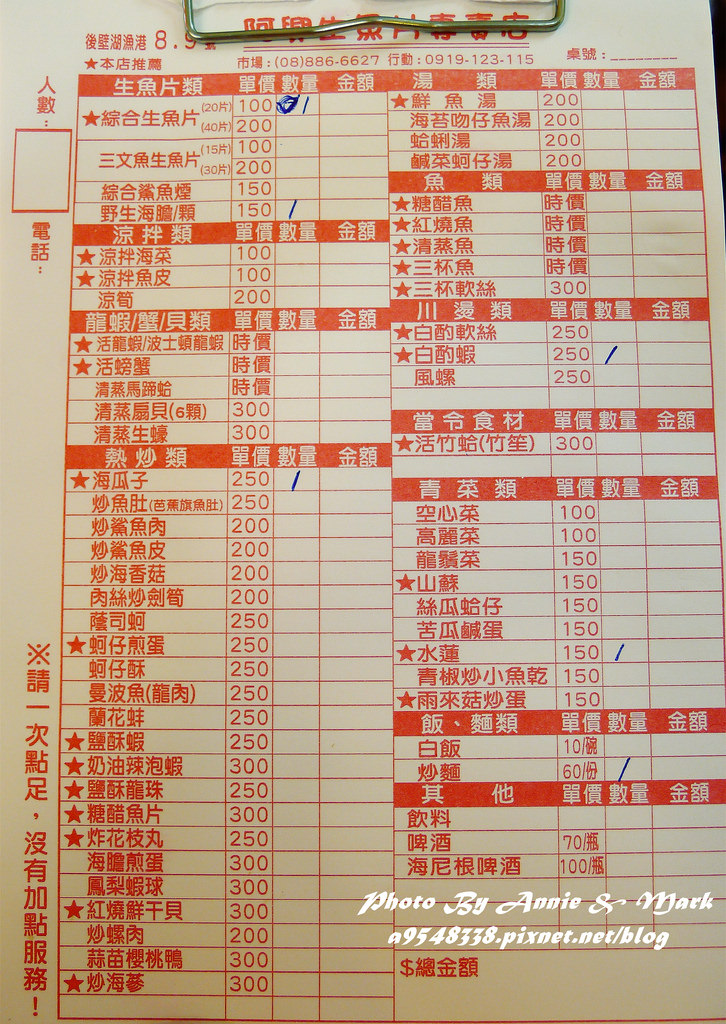 阿興生魚片專賣店
後壁湖漁港 8.9號
★本店推薦 市場:(08)886-6627 行動:0919-123-115 桌號:
人數:
電話:
※請一次點足,沒有加點服務!
生魚片類 單價 數量 金額
★綜合生魚片 (20片) 100 1
(40片) 200
三文魚生魚片 (15片) 100
(30片) 200
綜合鯊魚煙 150
野生海膽/顆 150 /
涼拌類 單價 數量 金額
★涼拌海菜 100
★涼拌魚皮 100
涼筍 200
龍蝦/蟹/貝類 單價 數量 金額
★活龍蝦/波士頓龍蝦 時價
★活螃蟹 時價
清蒸馬蹄蛤 時價
清蒸扇貝(6顆) 300
清蒸生蠔 300
熱炒類 單價 數量 金額
★海瓜子 250 /
炒魚肚(芭蕉旗魚肚) 250
炒鯊魚肉 200
炒鯊魚皮 200
炒海香菇 200
肉絲炒劍筍 200
蔭司蚵 250
★蚵仔煎蛋 250
蚵仔酥 250
曼波魚(龍肉) 250
蘭花蚌 250
★鹽酥蝦 250
★奶油辣泡蝦 300
★鹽酥龍珠 250
★糖醋魚片 300
★炸花枝丸 250
海膽煎蛋 300
鳳梨蝦球 300
★紅燒鮮干貝 300
炒螺肉 200
蒜苗櫻桃鴨 300
★炒海蔘 300
湯類 單價 數量 金額
★鮮魚湯 200
海苔吻仔魚湯 200
蛤蜊湯 200
鹹菜蚵仔湯 200
魚類 單價 數量 金額
★糖醋魚 時價
★紅燒魚 時價
★清蒸魚 時價
★三杯魚 時價
★三杯軟絲 300
川燙類 單價 數量 金額
★白酌軟絲 250
★白酌蝦 250 /
風螺 250
當令食材 單價 數量 金額
★活竹蛤(竹笙) 300
青菜類 單價 數量 金額
空心菜 100
高麗菜 100
龍鬚菜 150
★山蘇 150
絲瓜蛤仔 150
苦瓜鹹蛋 150
★水蓮 150 /
青椒炒小魚乾 150
★雨來菇炒蛋 150
飯、麵類 單價 數量 金額
白飯 10/碗
炒麵 60/份 /
其他 單價 數量 金額
飲料
啤酒 70/瓶
海尼根啤酒 100/瓶
$總金額
Photo By Annie & Mark
a9548338.pixnet.net/blog